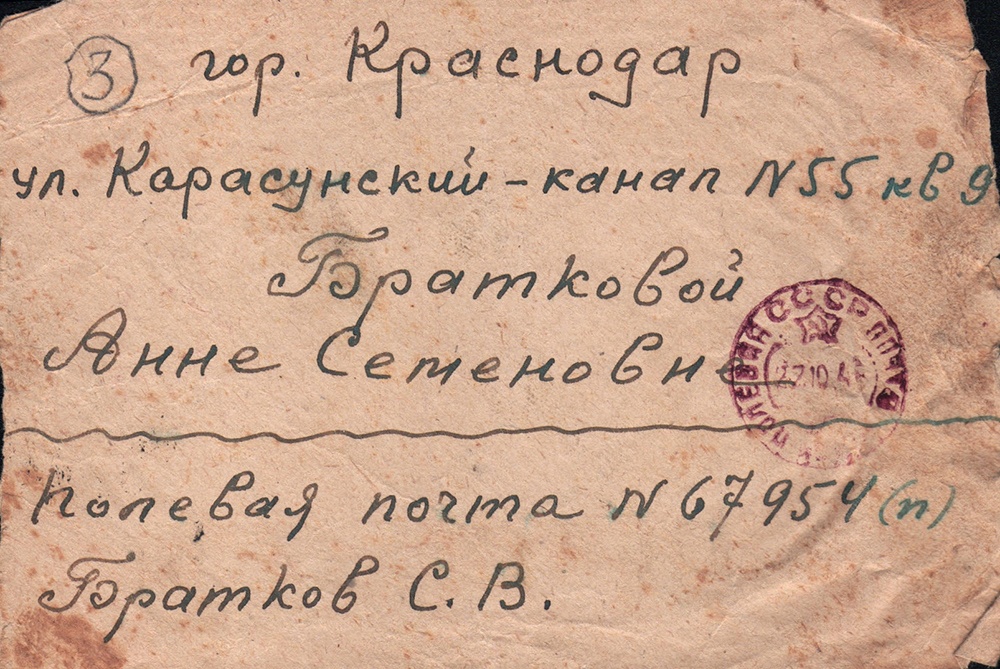 3 гор. Краснодар
ул. Карасунский - канал N 55 кв 9
Братковой
Анне Семеновне
СССР ПОЛЕВАЯ ПОЧТА
Полевая почта N 67954 (п)
Братков С. В.